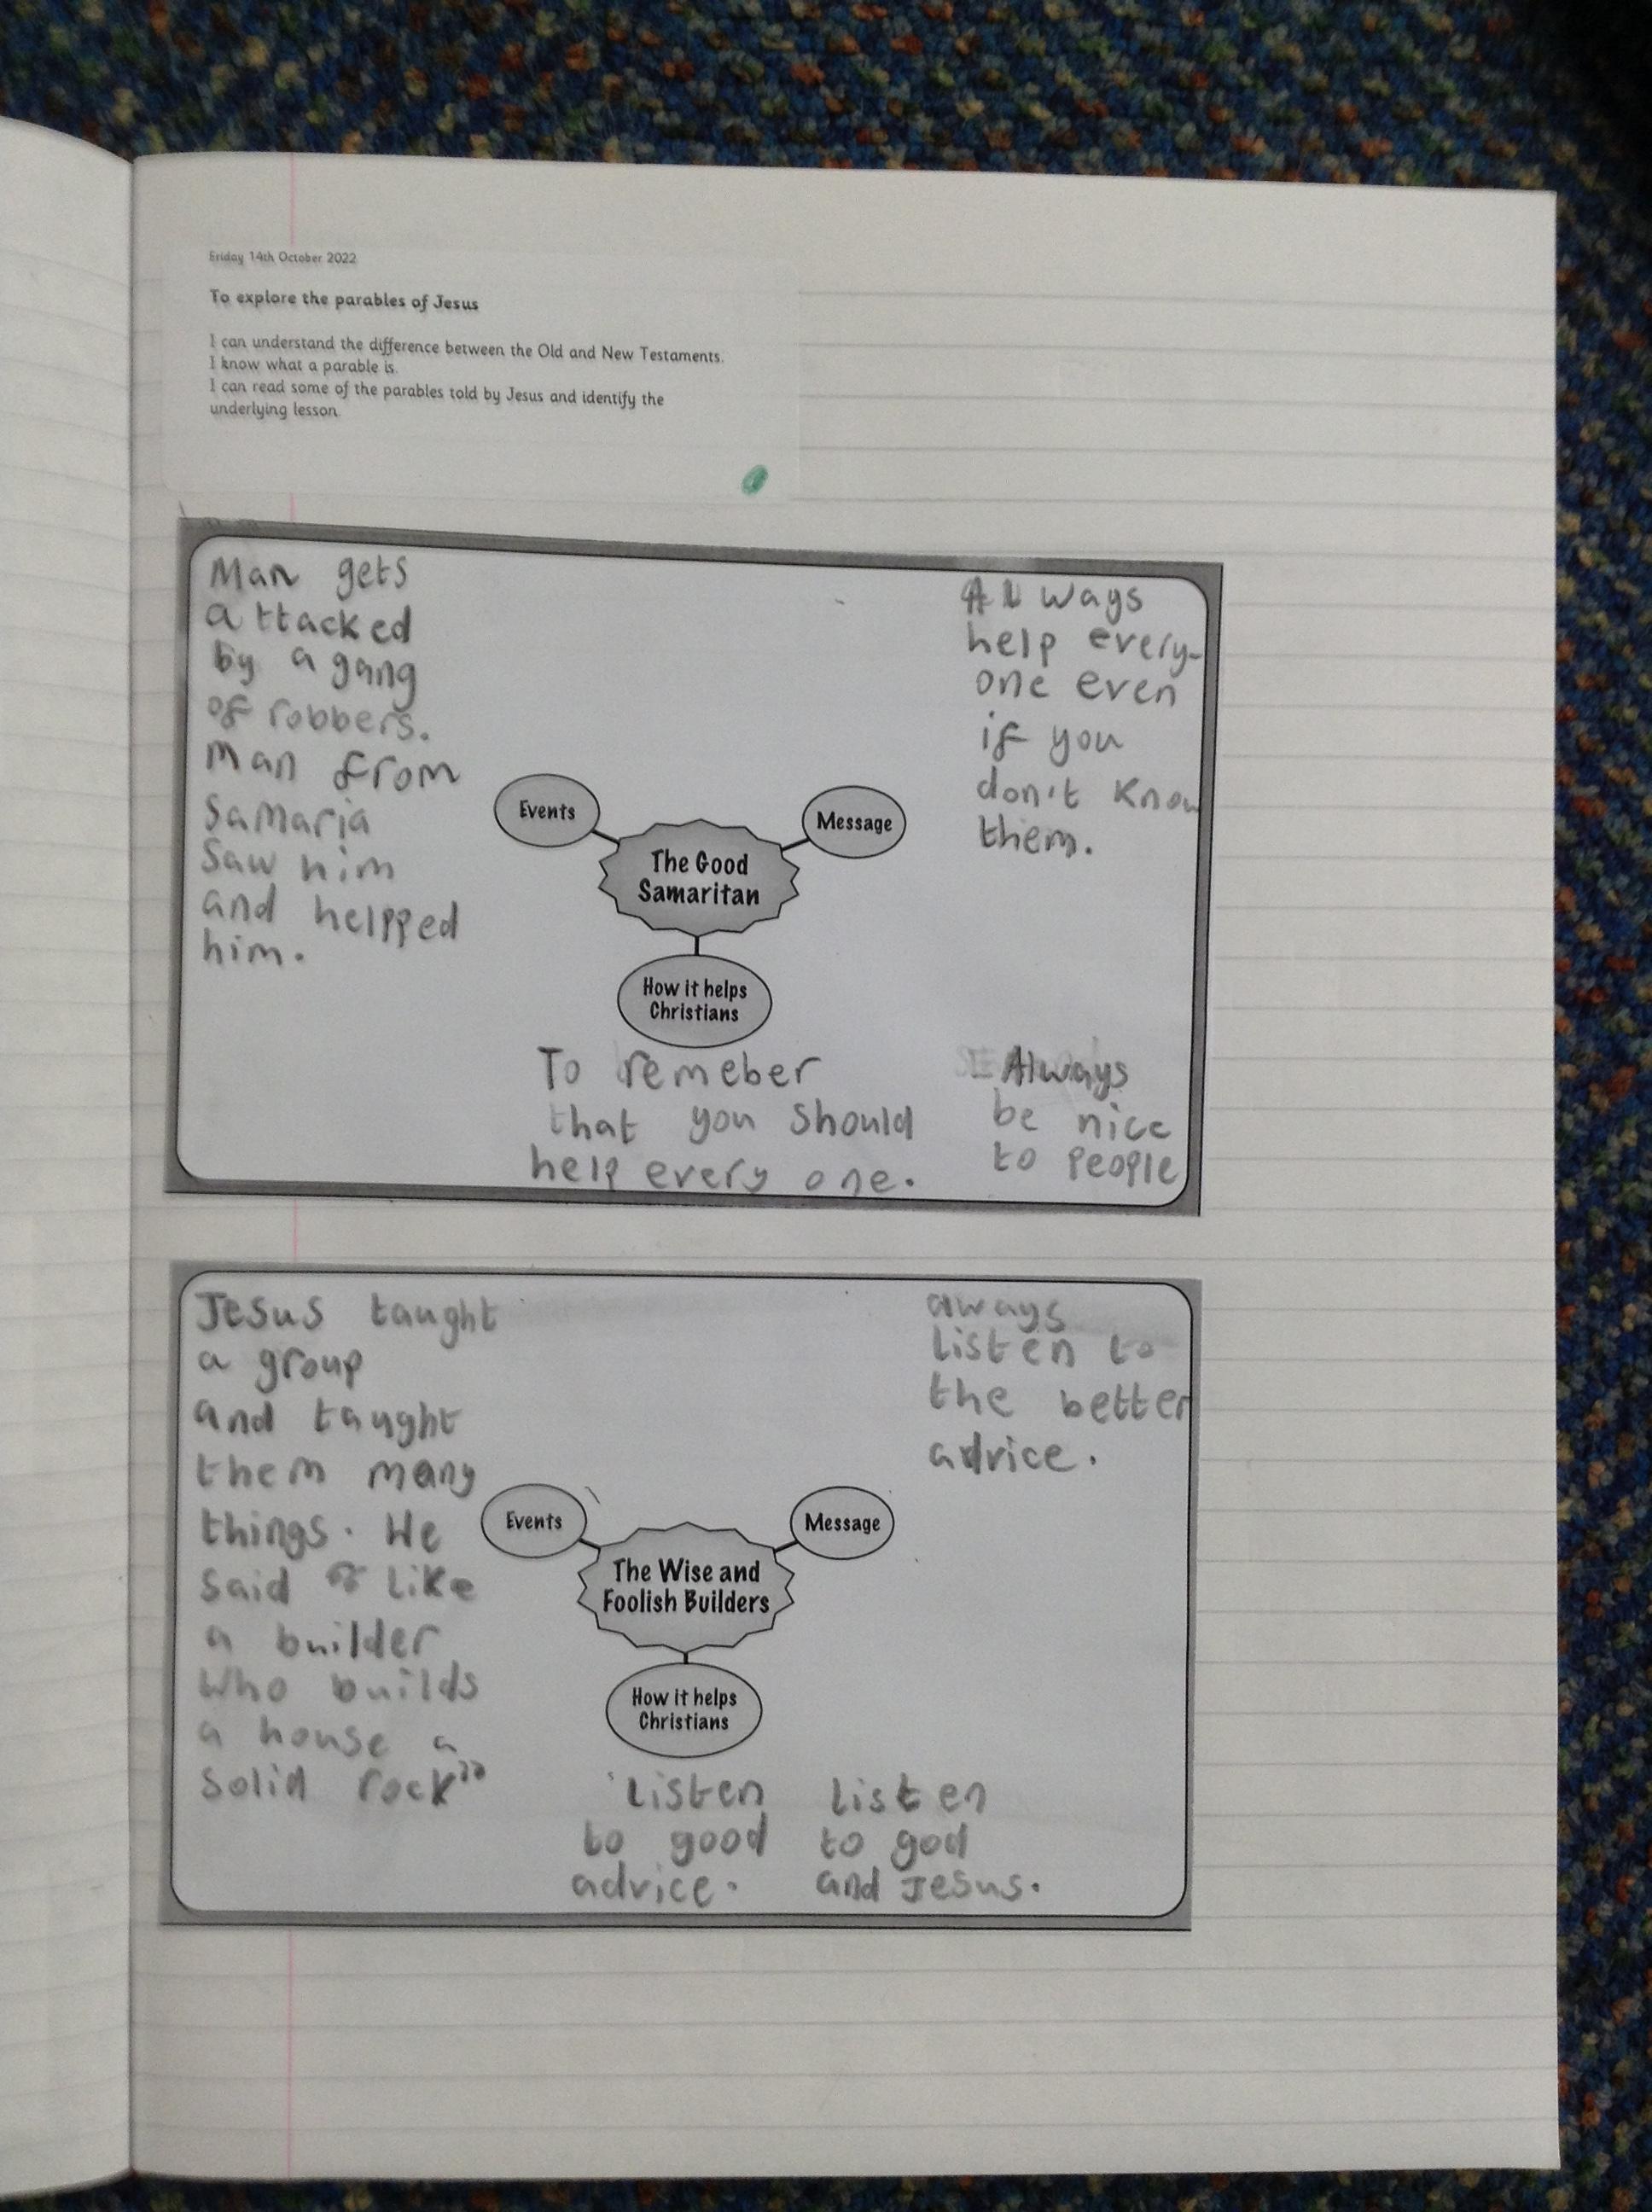 Friday 14th October 2022
To explore the parables of Jesus
I can understand the difference between the Old and New Testaments.
I know what a parable is.
I can read some of the parables told by Jesus and identify the
underlying lesson.
Man gets
attacked
by a gang
of robbers.
Man from
Samaria
Saw him
and helpped
him.
Events
The Good
Samaritan
Message
Always
help every-
one even
if you
don't know
them.
How it helps
Christians
To remeber
that you should
help every one.
Always
be nice
to people
Jesus taught
a group
and taught
them many
things. He
said like
a builder
who builds
a house a
solid rock"
Events
The Wise and
Foolish Builders
Message
aways
listen to
the better
advice.
How it helps
Christians
listen
to good
advice.
listen
to god
and Jesus.